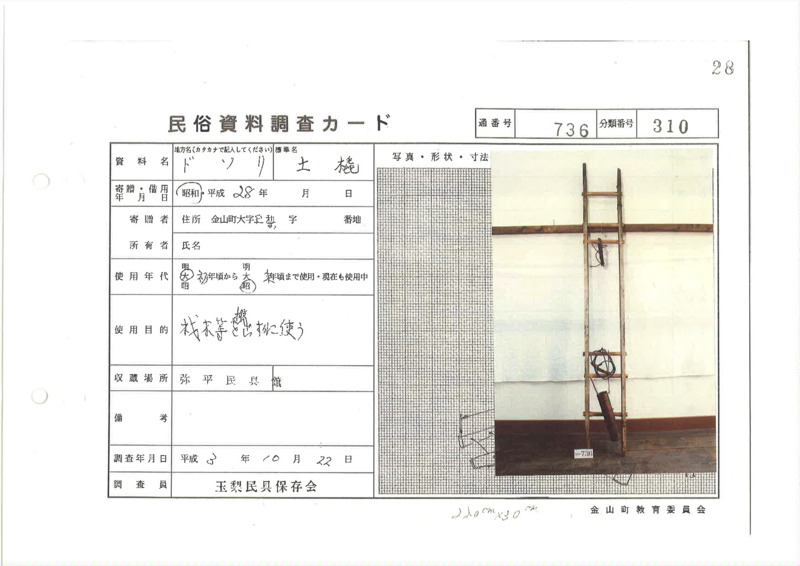 28
民俗資料調査カード
通番号 736 分類番号 310
資料名 地方名(カタカナで記入してください) ドソリ 標準名 土橇
写真・形状・寸法
寄贈・借用年月日 昭和・平成 28年 月 日
寄贈者 住所 金山町大字玉梨 字 番地
所有者 氏名
使用年代 明大昭 初年頃から 明大昭 年頃まで使用・現在も使用中
使用目的 伐木等を搬出するに使う
収蔵場所 弥平民具館
備考
調査年月日 平成 3年 10月 22日
調査員 玉梨民具保存会
220cm×30cm
金山町教育委員会